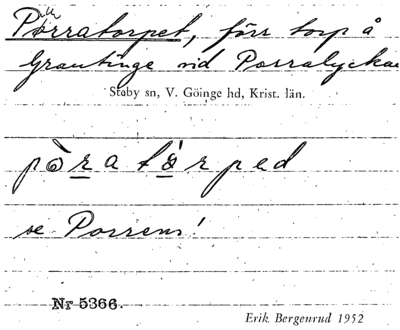 Porratorpet, förr torp å
Grantinge vid Porralyckan
Stoby sn, V. Göinge hd, Krist. län.
se Porrens!
Nr 5366.
Erik Bergenrud 1952